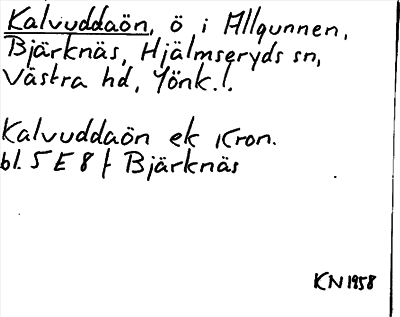 Kalvuddaön, ö i Allgunnen,
Bjärknäs, Hjälmseryds sn,
Västra hd, Jönk.l.
Kalvuddaön ek Kron.
bl. 5 E 8 f Bjärknäs
KN 1958